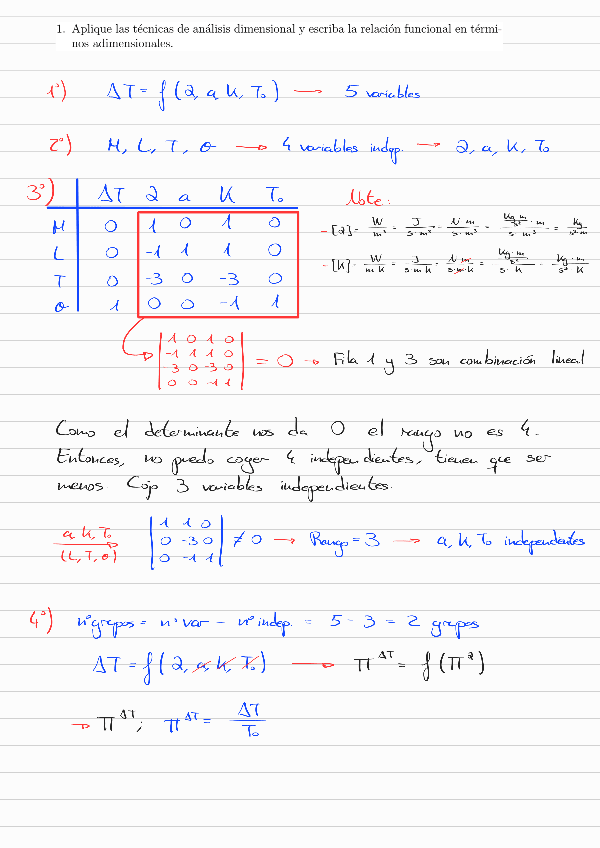 1. Aplique las técnicas de análisis dimensional y escriba la relación funcional en térmi-
nos adimensionales.
1º) ΔT = f (2, a, K, T₀) → 5 variables
2º) M, L, T, θ → 4 variables indep. → 2, a, K, T₀
3º) ΔT 2 a K T₀
M 0 1 0 1 0
L 0 -1 1 1 0
T 0 -3 0 -3 0
θ 1 0 0 -1 1
Note:
- [2] = W/m³ = J/(s·m³) = N·m/(s·m³) = (kg·m/s² · m)/(s·m³) = kg/(s³·m)
- [K] = W/(m·K) = J/(s·m·K) = N·m/(s·m·K) = (kg·m/s²)/(s·K) = kg·m/(s³·K)
| 1 0 1 0 |
| -1 1 1 0 |
| -3 0 -3 0 |
| 0 0 -1 1 |
= 0 → Fila 1 y 3 son combinación lineal
Como el determinante nos da 0 el rango no es 4.
Entonces, no puedo coger 4 independientes, tienen que ser
menos. Cojo 3 variables independientes.
a, K, T₀
(L, T, θ)
| 1 1 0 |
| 0 -3 0 |
| 0 -1 1 |
≠ 0 → Rango = 3 → a, K, T₀ independientes
4º) nº grupos = nº var - nº indep. = 5 - 3 = 2 grupos
ΔT = f (2, a, K, T₀) → Π^ΔT = f (Π^2)
→ Π^ΔT ; Π^ΔT = ΔT/T₀